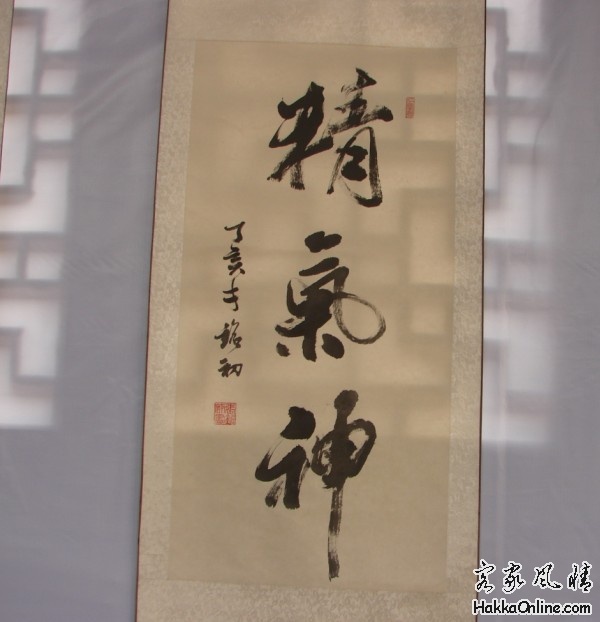 精氣神
丁亥 銘初
客家风情
HakkaOnline.com